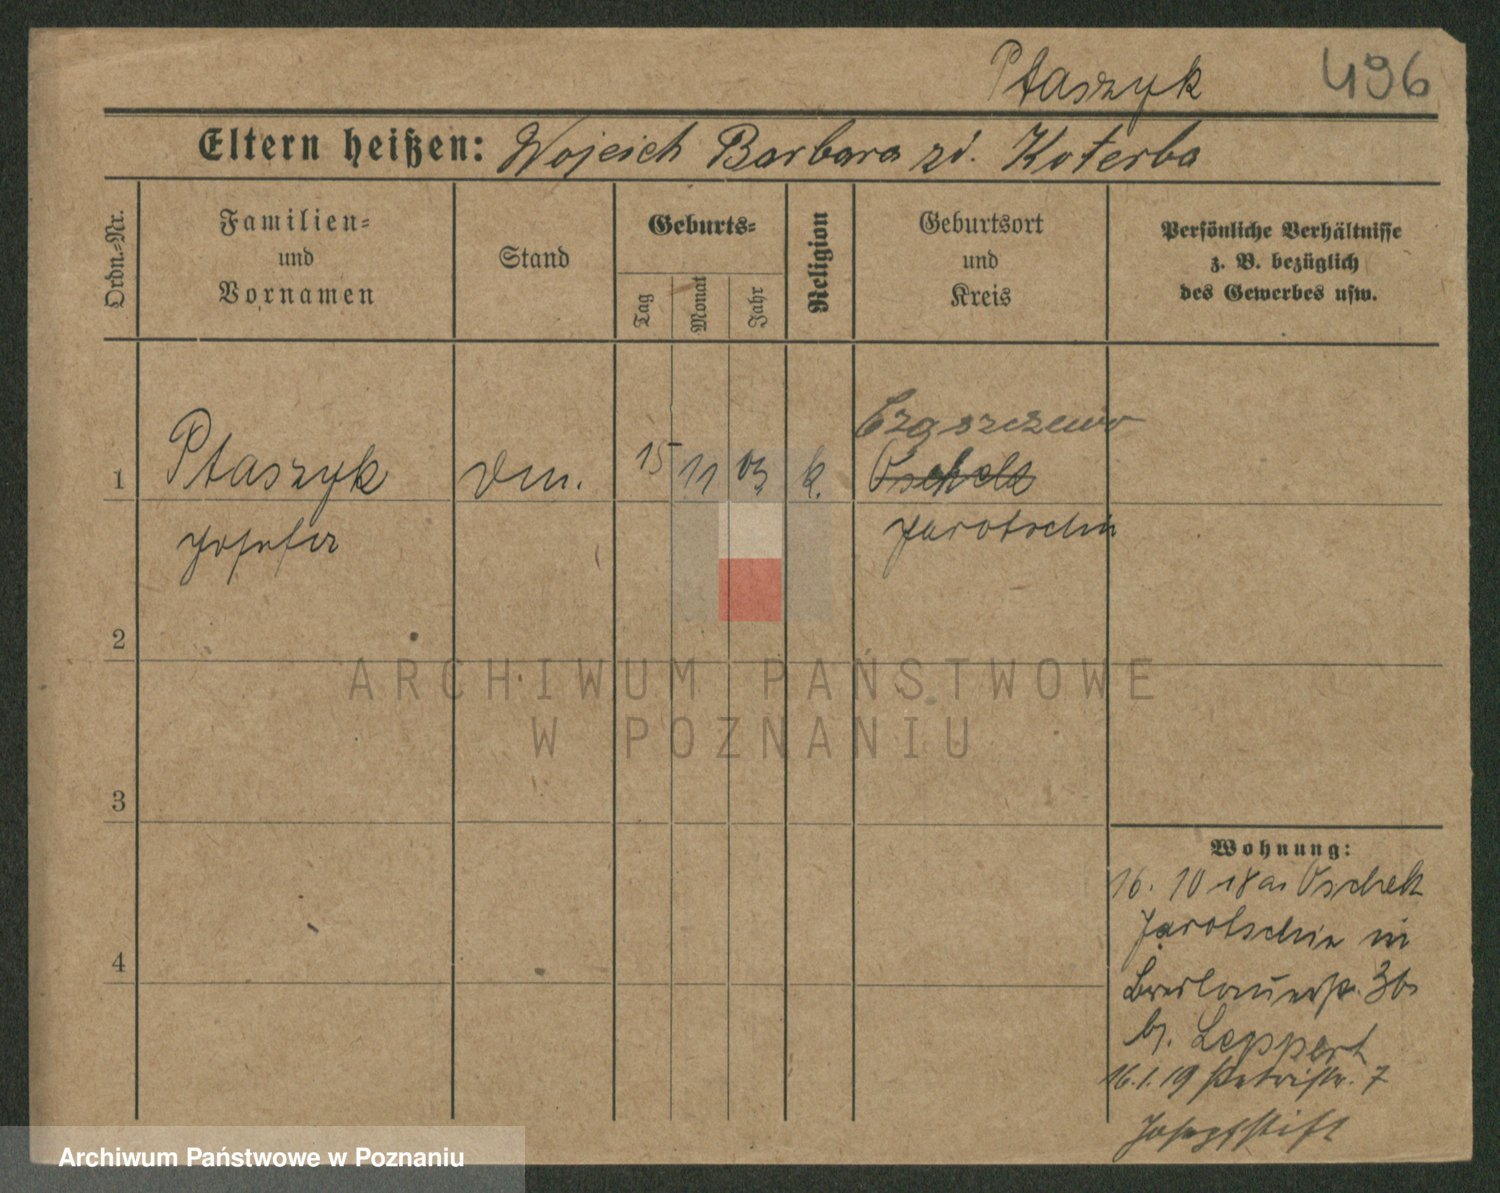 Ptaszyk 496
Eltern heißen: Wojcich Barbara zd. Koterba
Ordn.-Nr.
Familien-
und
Vornamen
Stand
Geburts-
Tag
Monat
Jahr
Religion
Geburtsort
und
Kreis
Persönliche Verhältnisse
z. B. bezüglich
des Gewerbes usw.
1 Ptaszyk 15 11 03 k.
Josefa Jarotschin
2
3
4
Wohnung:
16. 10 18 a.
Jarotschin in
Breslauerstr. 36
bj. Leppert
16.1.19 Petristr. 7
Josefsstift
ARCHIWUM PAŃSTWOWE
W POZNANIU
Archiwum Państwowe w Poznaniu